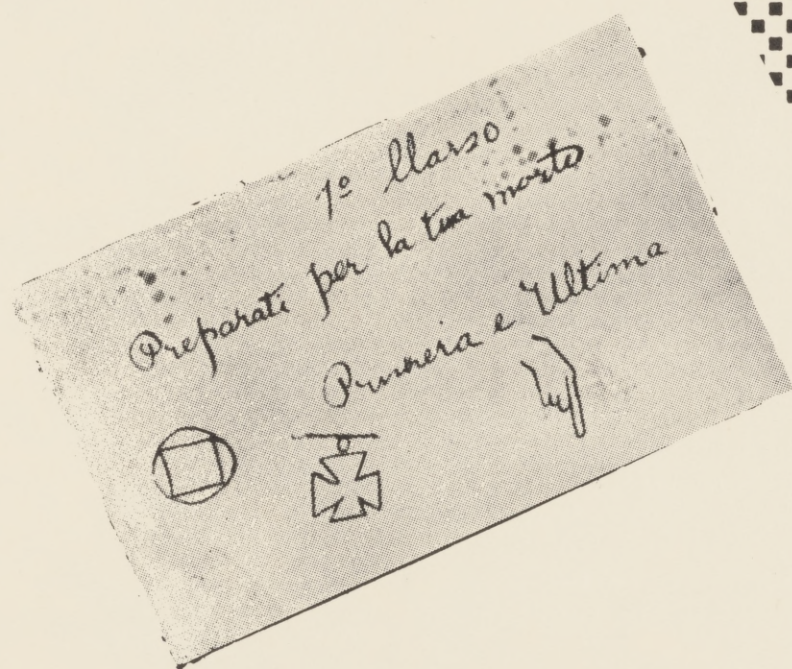 1º Marso
Preparati per la tua morte
Primera e Ultima